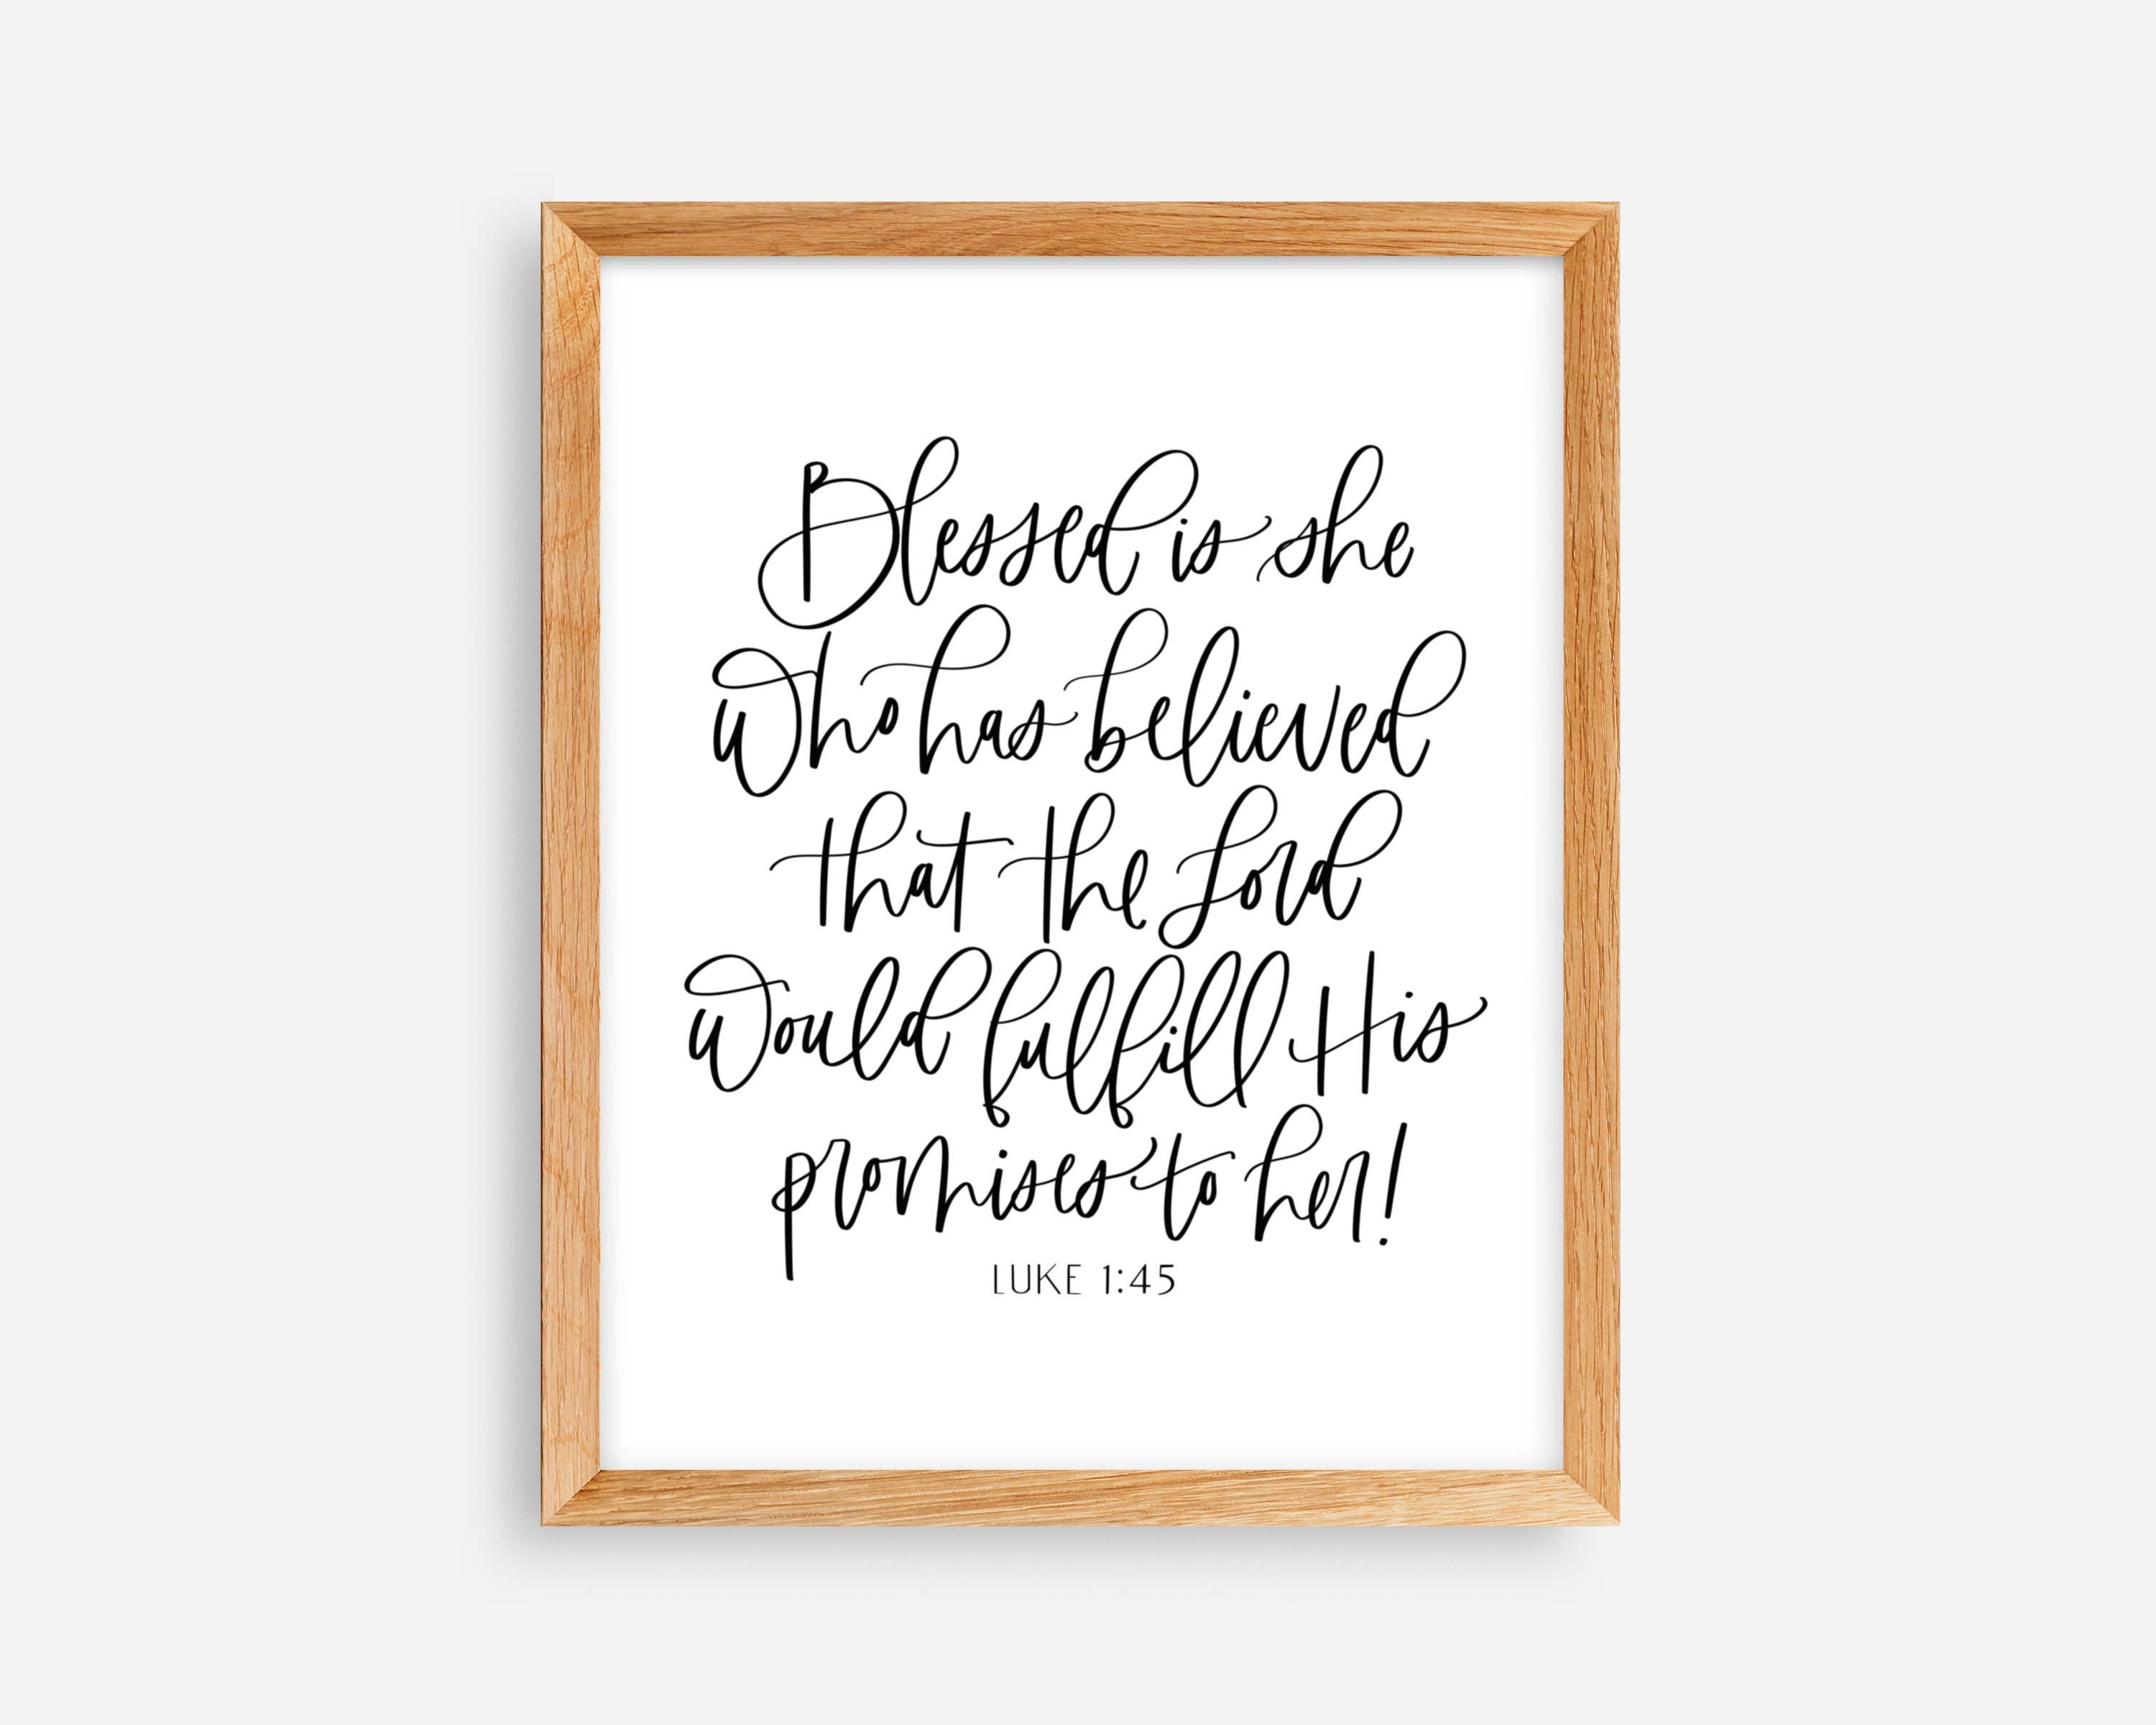 Blessed is she
who has believed
that the Lord
would fulfill His
promises to her!
LUKE 1:45